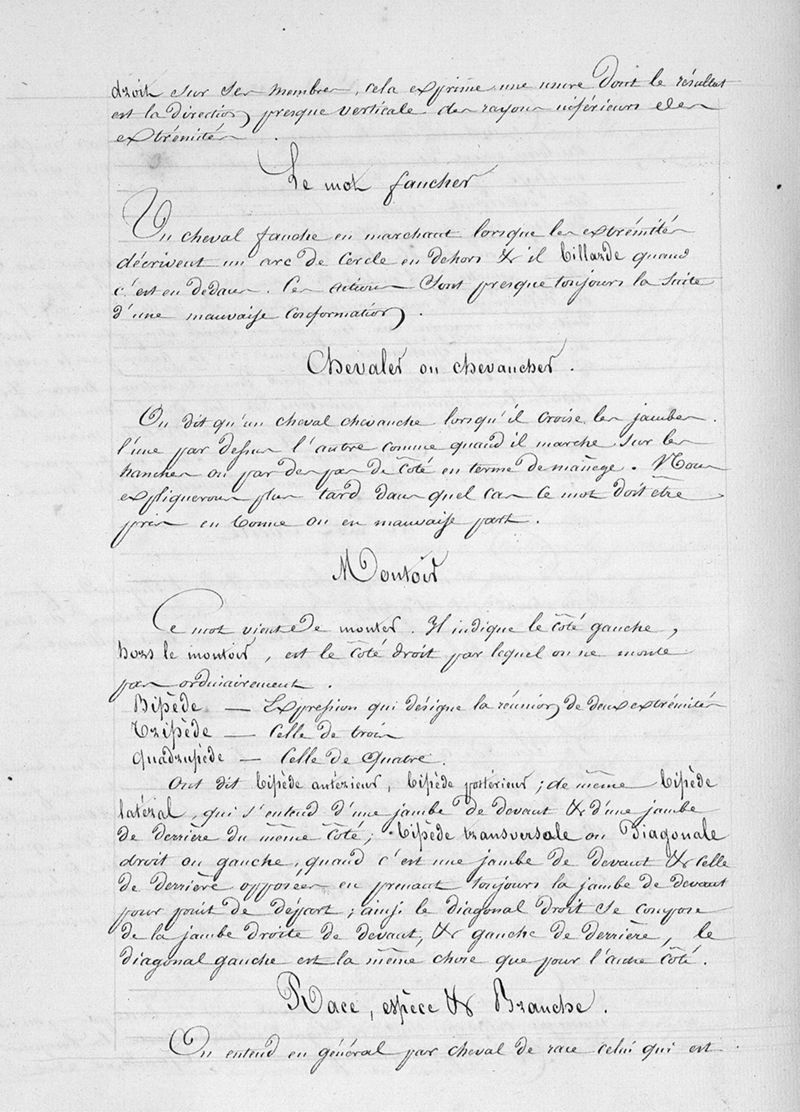 droit sur ses membres, cela exprime une usure dont le résultat
est la direction presque verticale des rayons inférieurs des
extrémités.
Le mot faucher
Un cheval fauche en marchant lorsque les extrémités
décrivent un arc de cercle en dehors & il billarde quand
c'est en dedans. Ces actions sont presque toujours la suite
d'une mauvaise conformation.
Chevaler ou chevaucher.
On dit qu'un cheval chevauche lorsqu'il croise les jambes
l'une par dessus l'autre comme quand il marche sur les
hanches ou par des pas de côté en terme de manège. Nous
expliquerons plus tard dans quel cas ce mot doit être
pris en bonne ou en mauvaise part.
Montoir
Ce mot vient de monter. Il indique le côté gauche,
hors le montoir, est le côté droit par lequel on ne monte
pas ordinairement.
Bipède — Expression qui désigne la réunion de deux extrémités
Tripède — Celle de trois
Quadrupède — Celle de Quatre.
Ont dit bipède antérieur, bipède postérieur; de même bipède
latéral, qui s'entend d'une jambe de devant & d'une jambe
de derrière du même côté; bipède transversale ou Diagonale
droit ou gauche, quand c'est une jambe de devant & celle
de derrière opposées en prenant toujours la jambe de devant
pour point de départ; ainsi le diagonal droit se compose
de la jambe droite de devant, & gauche de derrière, le
diagonal gauche est la même chose que pour l'autre côté.
Race, espèce & Branche.
On entend en général par cheval de race celui qui est